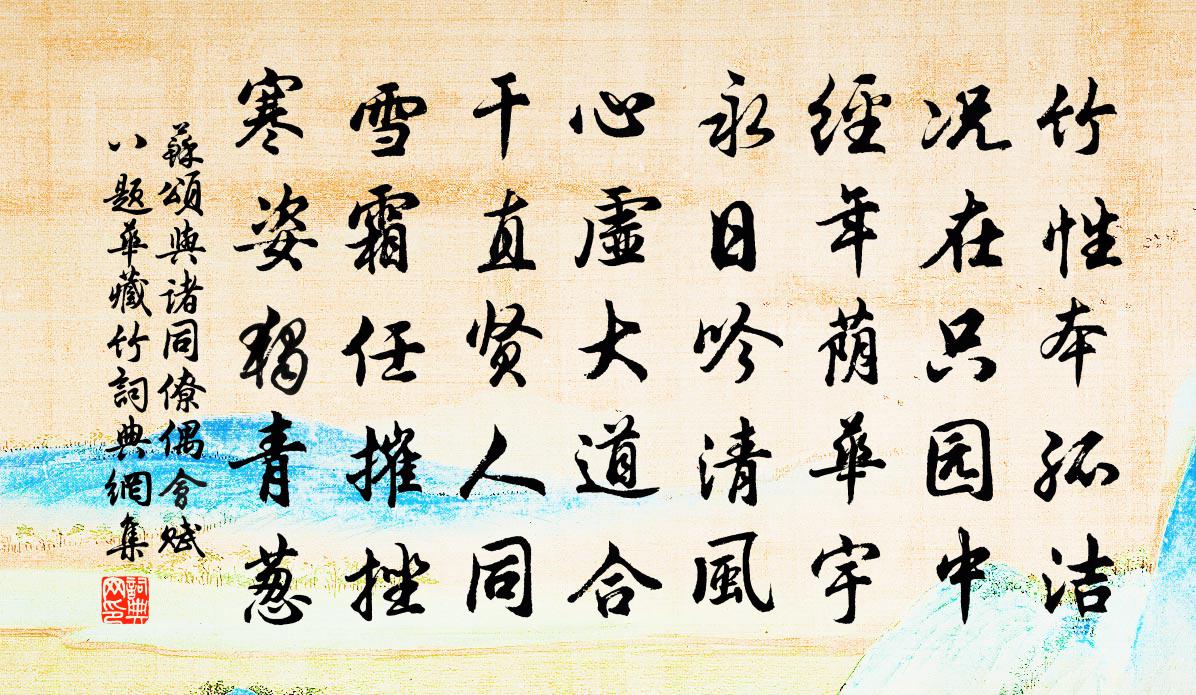 竹性本孤洁
况在只园中
經年荫華宇
永日吟清風
心虛大道合
干直贤人同
雪霜任摧挫
寒姿独青葱
蘇頌與诸同僚偶會赋
八题華藏竹詞典網集
詞典网印